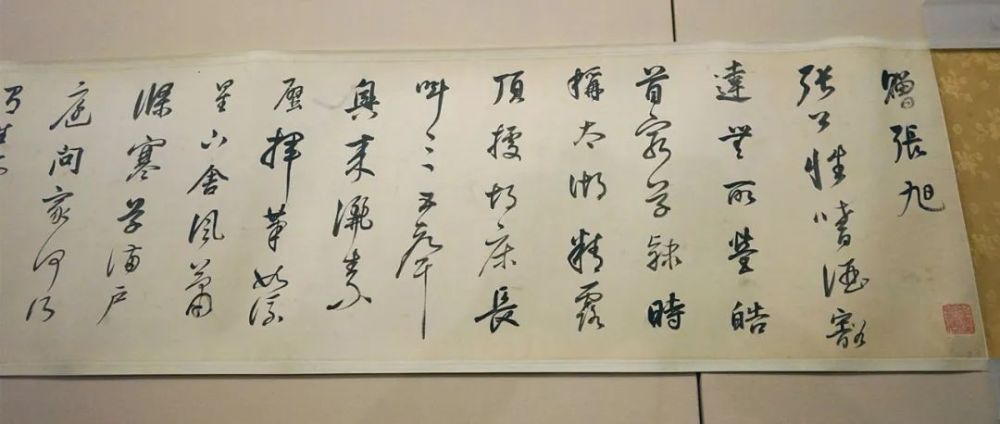 贈張旭
張公性嗜酒豁
達無所營皓
首窮草隸時
稱太湖精露
頂據胡床長
叫三五聲
興來灑素
壁揮筆如流
星下舍風蕭
條寒草滿戶
庭問家何所